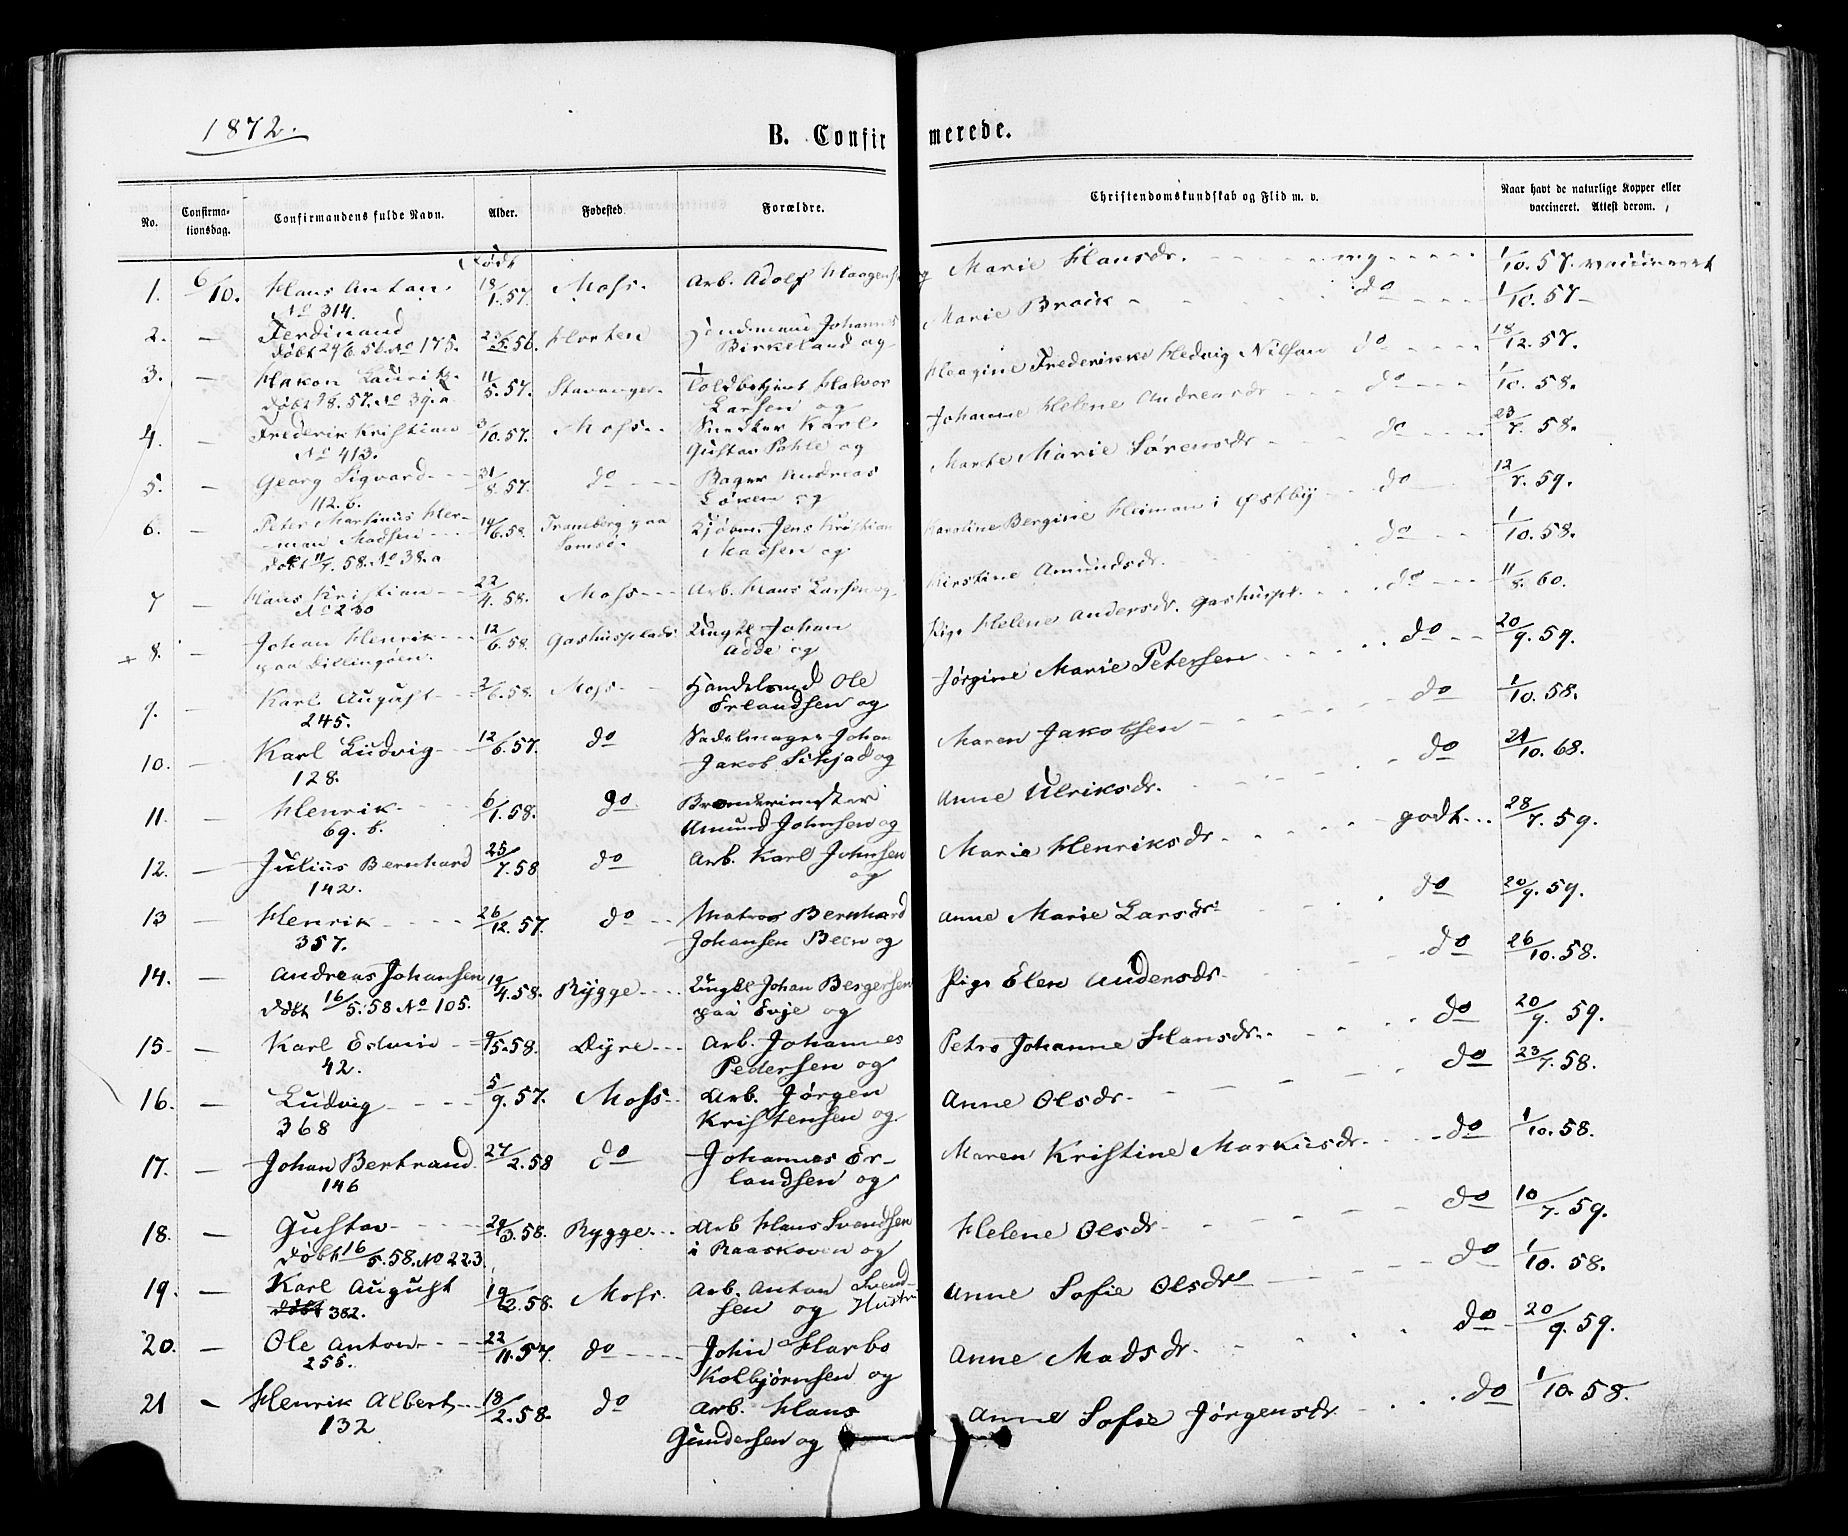 1872.
B. Confirmerede.
No. Confirmationsdag. Confirmandens fulde Navn. Alder. Fødested. Forældre. Christendomskundskab og Flid m. v. Naar havt de naturlige Kopper eller vaccineret. Attest derom.
Født
1. 6/10. Hans Anton 18/1.57. Moss. Arb. Adolf Haagens og Marie Hansdr. mg 1/10.57. vaccineret
No 314.
2. — Ferdinand 23/5.56. Horten Johannes Marie do 1/10.57
Døbt 29/6.56. No 175. Birkeland og
3. — Hakon Laurits 11/5.57. Stavanger Toldbetjent Halvor Haagine Frederikke Hedvig Nilsen do 18/12.57.
Døbt 28.57. No 39.a Larsen og
4. — Frederik Kristian 3/10.57. Moss Snedker Karl Johanne Helene Andreasdr do 1/10.58.
No 413. Gustav Pahle og
5. — Georg Sigvard 31/8.57. do Bager Andreas Marthe Marie Sørensdr do 23/7.58.
112.b. Løken og
6. — Peter Martinus Her- 19/6.58. Traneberg paa Jens Kristian Karoline Bergine Heiman i Østby do 12/7.59.
man Madsen Samsø. Madsen og
døbt 11/7.58. No 38.a
7 — Hans Kristian 22/4.58. Moss Arb. Hans Larsen og Kirstine Amundsdr. do 1/10.58.
No 230
+ 8. — Johan Henrik 12/6.58. Gashusplads Ungkl Johan Pige Helene Andersdr. Gashuspl. do 11/8.60.
paa Dillingøen. Adde og
9. — Karl August 2/6.58. Moss Handelsmd Ole Jørgine Marie Petersen do 20/9.59.
245. Erlandsen og
10. — Karl Ludvig 12/6.57. do Sadelmager Johan Maren Jakobsen do 1/10.58.
128. Jakob og
11. — Henrik 6/1.58. do Amund Johnsen og Anne Ulriksdr. do 21/10.68.
69.b.
12. — Julius Bernhard 25/7.58 do Arb. Karl Johnsen Marie Henriksdr. godt 28/7.59.
142. og
13 — Henrik 26/12.57. do Matros Bernhard Anne Marie Larsdr do 20/9.59.
357. Johansen Been og
14. — Andreas Johansen 19/4.58. Rygge Ungkl Johan Bergersen Pige Elen Andersdr. do 26/10.58.
Døbt 16/5.58 No 105. paa Evje og
15. — Karl Edvin 9/5.58. Dyre Arb. Johannes Petra Johanne Hansdr. do 20/9.59.
42. Pedersen og
16. — Ludvig 5/9.57. Moss Arb. Jørgen Anne Olsdr. do 23/7.58.
368 Kristensen og
17. — Johan Bertrand 27/2.58 do Johannes Er- Maren Kristine Markusdr. do 1/10.58.
146 landsen og
18. — Gustav 29/3.58. Rygge Arb Hans Svendsen Helene Olsdr do 10/7.59.
døbt 16/5.58. No 223. i Raaskoven og
19. — Karl August 19/2.58. Moss Arb. Anton Svend- Anne Sofie Olsdr do 1/10.58.
døbt 382. sen og Hustru
20. — Ole Anton 22/11.57. do John Harbo Anne Madsdr. do 20/9.59.
255. Kolbjørnsen og
21 — Henrik Albert 18/2.58. do Arb. Hans Anne Sofie Jørgensdr do 1/10.58.
132 Gundersen og